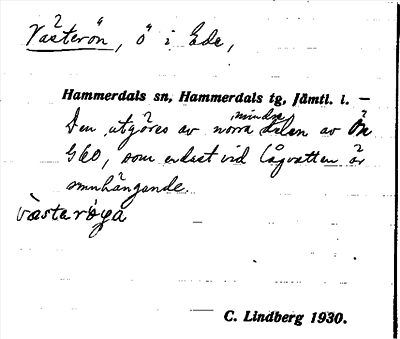 Västerön, ö i Ede,
Hammerdals sn, Hammerdals tg, Jämtl. l. —
Den utgöres av norra mindre delen av Ön
G60, som endast vid lågvatten är
smnhängande.
västerøya
— C. Lindberg 1930.